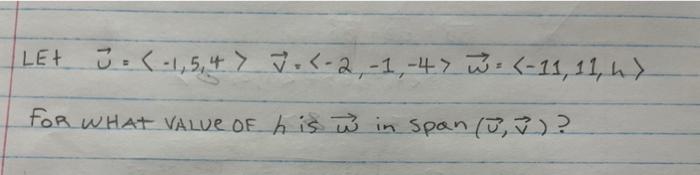 LEt u⃗ = <-1,5,4> v⃗ = <-2,-1,-4> w⃗ = <-11,11,h>
FOR WHAt VALUE OF h is w⃗ in span (u⃗,v⃗)?